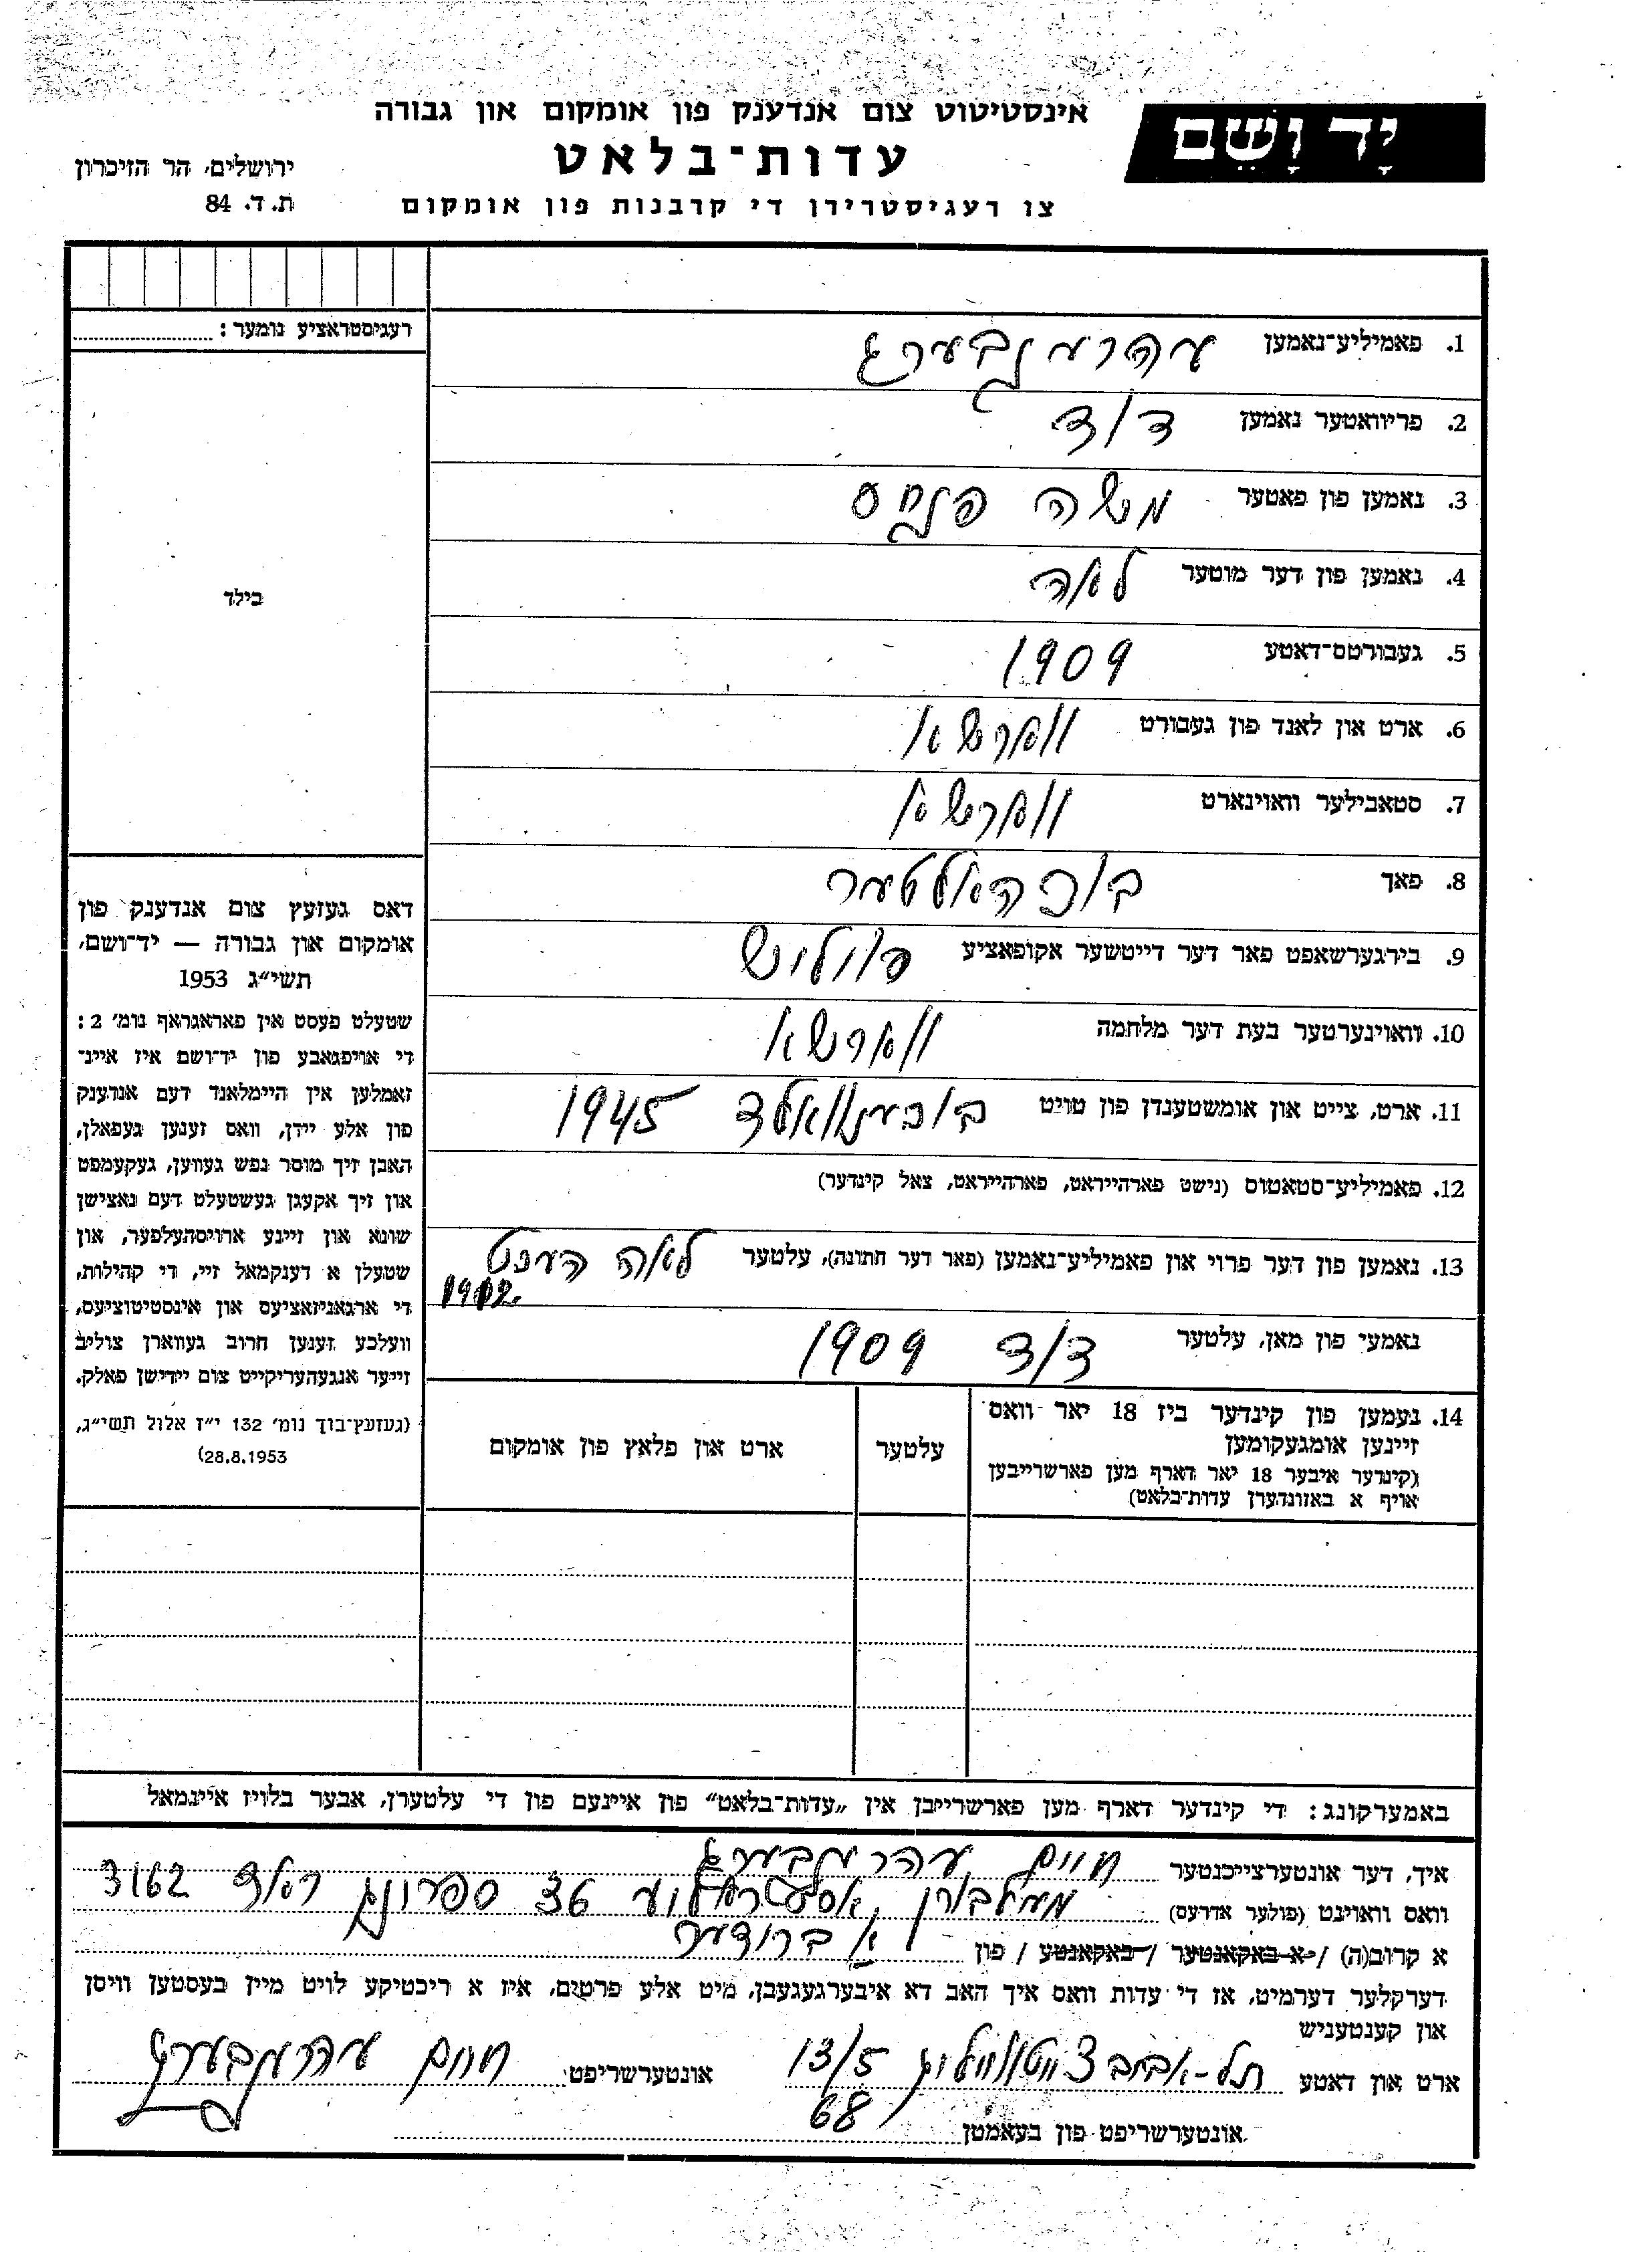 יָד וָשֵׁם
אינסטיטוט צום אנדענק פון אומקום און גבורה
עדות־בלאט
צו רעגיסטרירן די קרבנות פון אומקום
ירושלים, הר הזיכרון
ת. ד. 84
רעגיסטראציע נומער :
בילד
1. פאמיליע־נאמען עהרענבערג
2. פריוואטער נאמען דוד
3. נאמען פון פאטער משה פנחס
4. נאמען פון דער מוטער לאה
5. געבורטס־דאטע 1909
6. ארט און לאנד פון געבורט ווארשא
7. סטאבילער וואוינארט ווארשא
8. פאך בוכהאלטער
9. בירגערשאפט פאר דער דייטשער אקופאציע פוליש
10. וואוינערטער בעת דער מלחמה ווארשא
11. ארט, צייט און אומשטענדן פון טויט בוכענוואלד 1945
12. פאמיליע־סטאטוס (נישט פארהייראט, פארהייראט, צאל קינדער)
13. נאמען פון דער פרוי און פאמיליע־נאמען (פאר דער חתונה), עלטער לאה הענט
נאמעי פון מאן, עלטער דוד 1909
14. נעמען פון קינדער ביז 18 יאר וואס
זיינען אומגעקומען
(קינדער איבער 18 יאר דארף מען פארשרייבען
אויף א באזונדערן עדות־בלאט)
עלטער
ארט און פלאץ פון אומקום
דאס געזעץ צום אנדענק פון
אומקום און גבורה — יד־ושם,
תשי״ג 1953
שטעלט פעסט אין פאראגראף נומ׳ 2 :
די אויפגאבע פון יד־ושם איז איינ־
זאמלען אין היימלאנד דעם אנדענק
פון אלע יידן, וואס זענען געפאלן,
האבן זיך מוסר נפש געווען, געקעמפט
און זיך אקעגן געשטעלט דעם נאצישן
שונא און זיינע ארויסהעלפער, און
שטעלן א דענקמאל זיי, די קהילות,
די ארגאניזאציעס און אינסטיטוציעס,
וועלכע זענען חרוב געווארן צוליב
זייער אנגעהעריקייט צום יידישן פאלק.
(געזעץ־בוך נומ׳ 132 י״ז אלול תשי״ג,
28.8.1953)
באמערקונג : די קינדער דארף מען פארשרייבן אין „עדות־בלאט״ פון איינעם פון די עלטערן, אבער בלויז איינמאל
איך, דער אונטערצייכנטער חיים עהרענבערג
וואס וואוינט (פולער אדרעס) מעלבורן אסטראליע 36 ספרונג ראד 3162
א קרוב(ה) / א באקאנטער / באקאנטע / פון א ברודער
דערקלער דערמיט, אז די עדות וואס איך האב דא איבערגעגעבן, מיט אלע פרטים, איז א ריכטיקע לויט מיין בעסטען וויסן
און קענטעניש
ארט און דאטע תל-אביב 13/5 68 אונטערשריפט חיים עהרענבערג
אונטערשריפט פון באאמטן